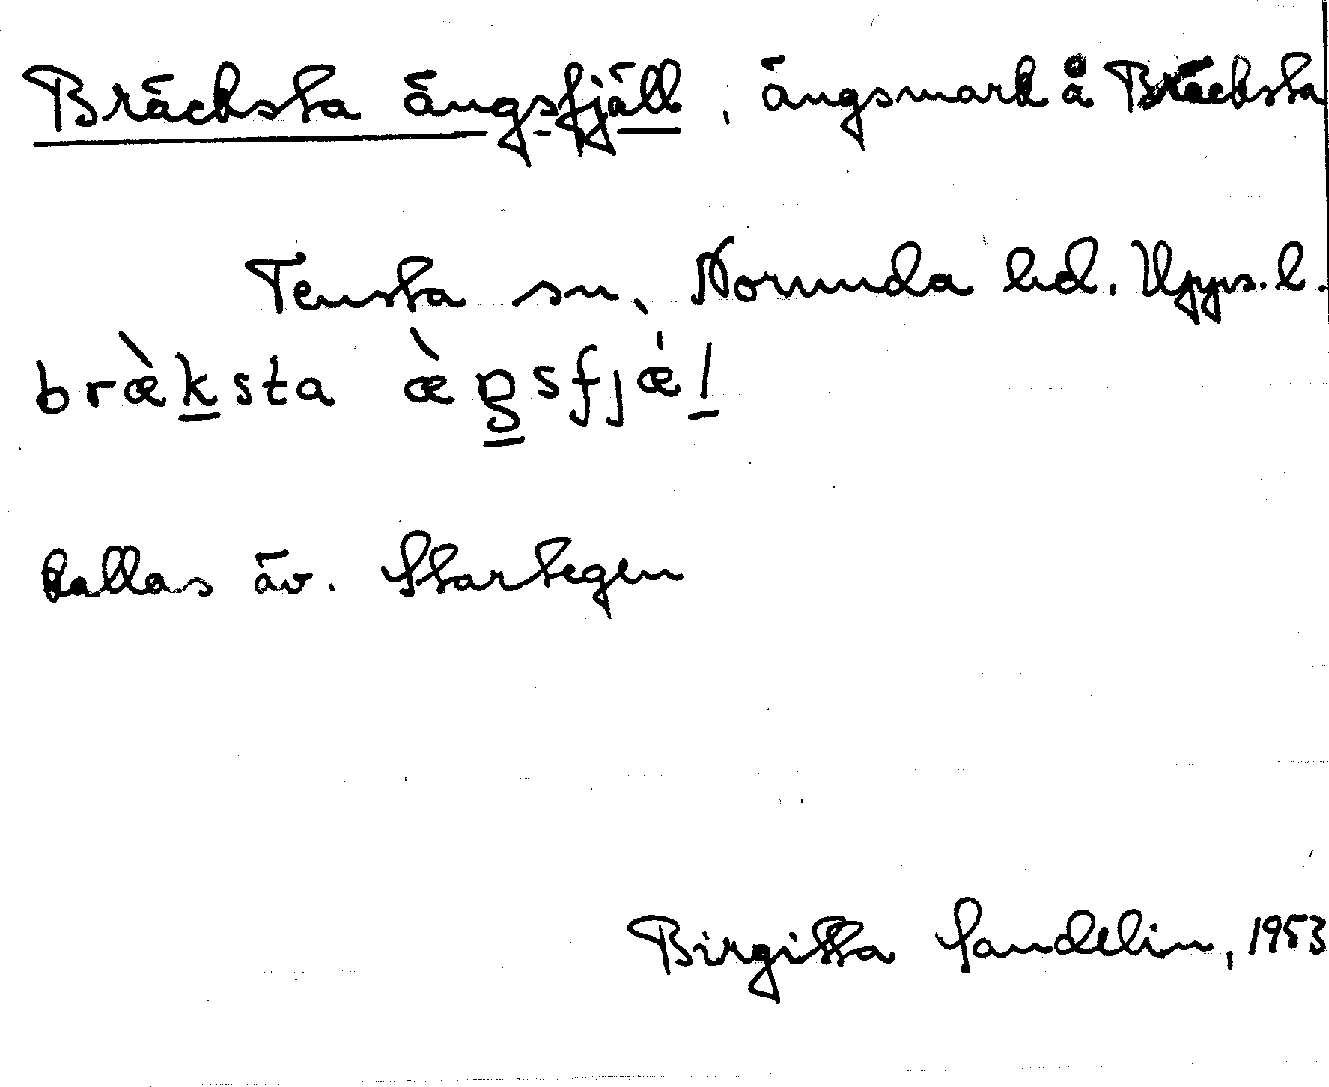 Bräcksta ängsfjäll, ängsmark å Bräcksta
Tensta sn, Norunda hd. Upps. l.
bræ̀ksta æ̀ŋsfjǽl
kallas äv. Startegen
Birgitta Sandelin, 1953